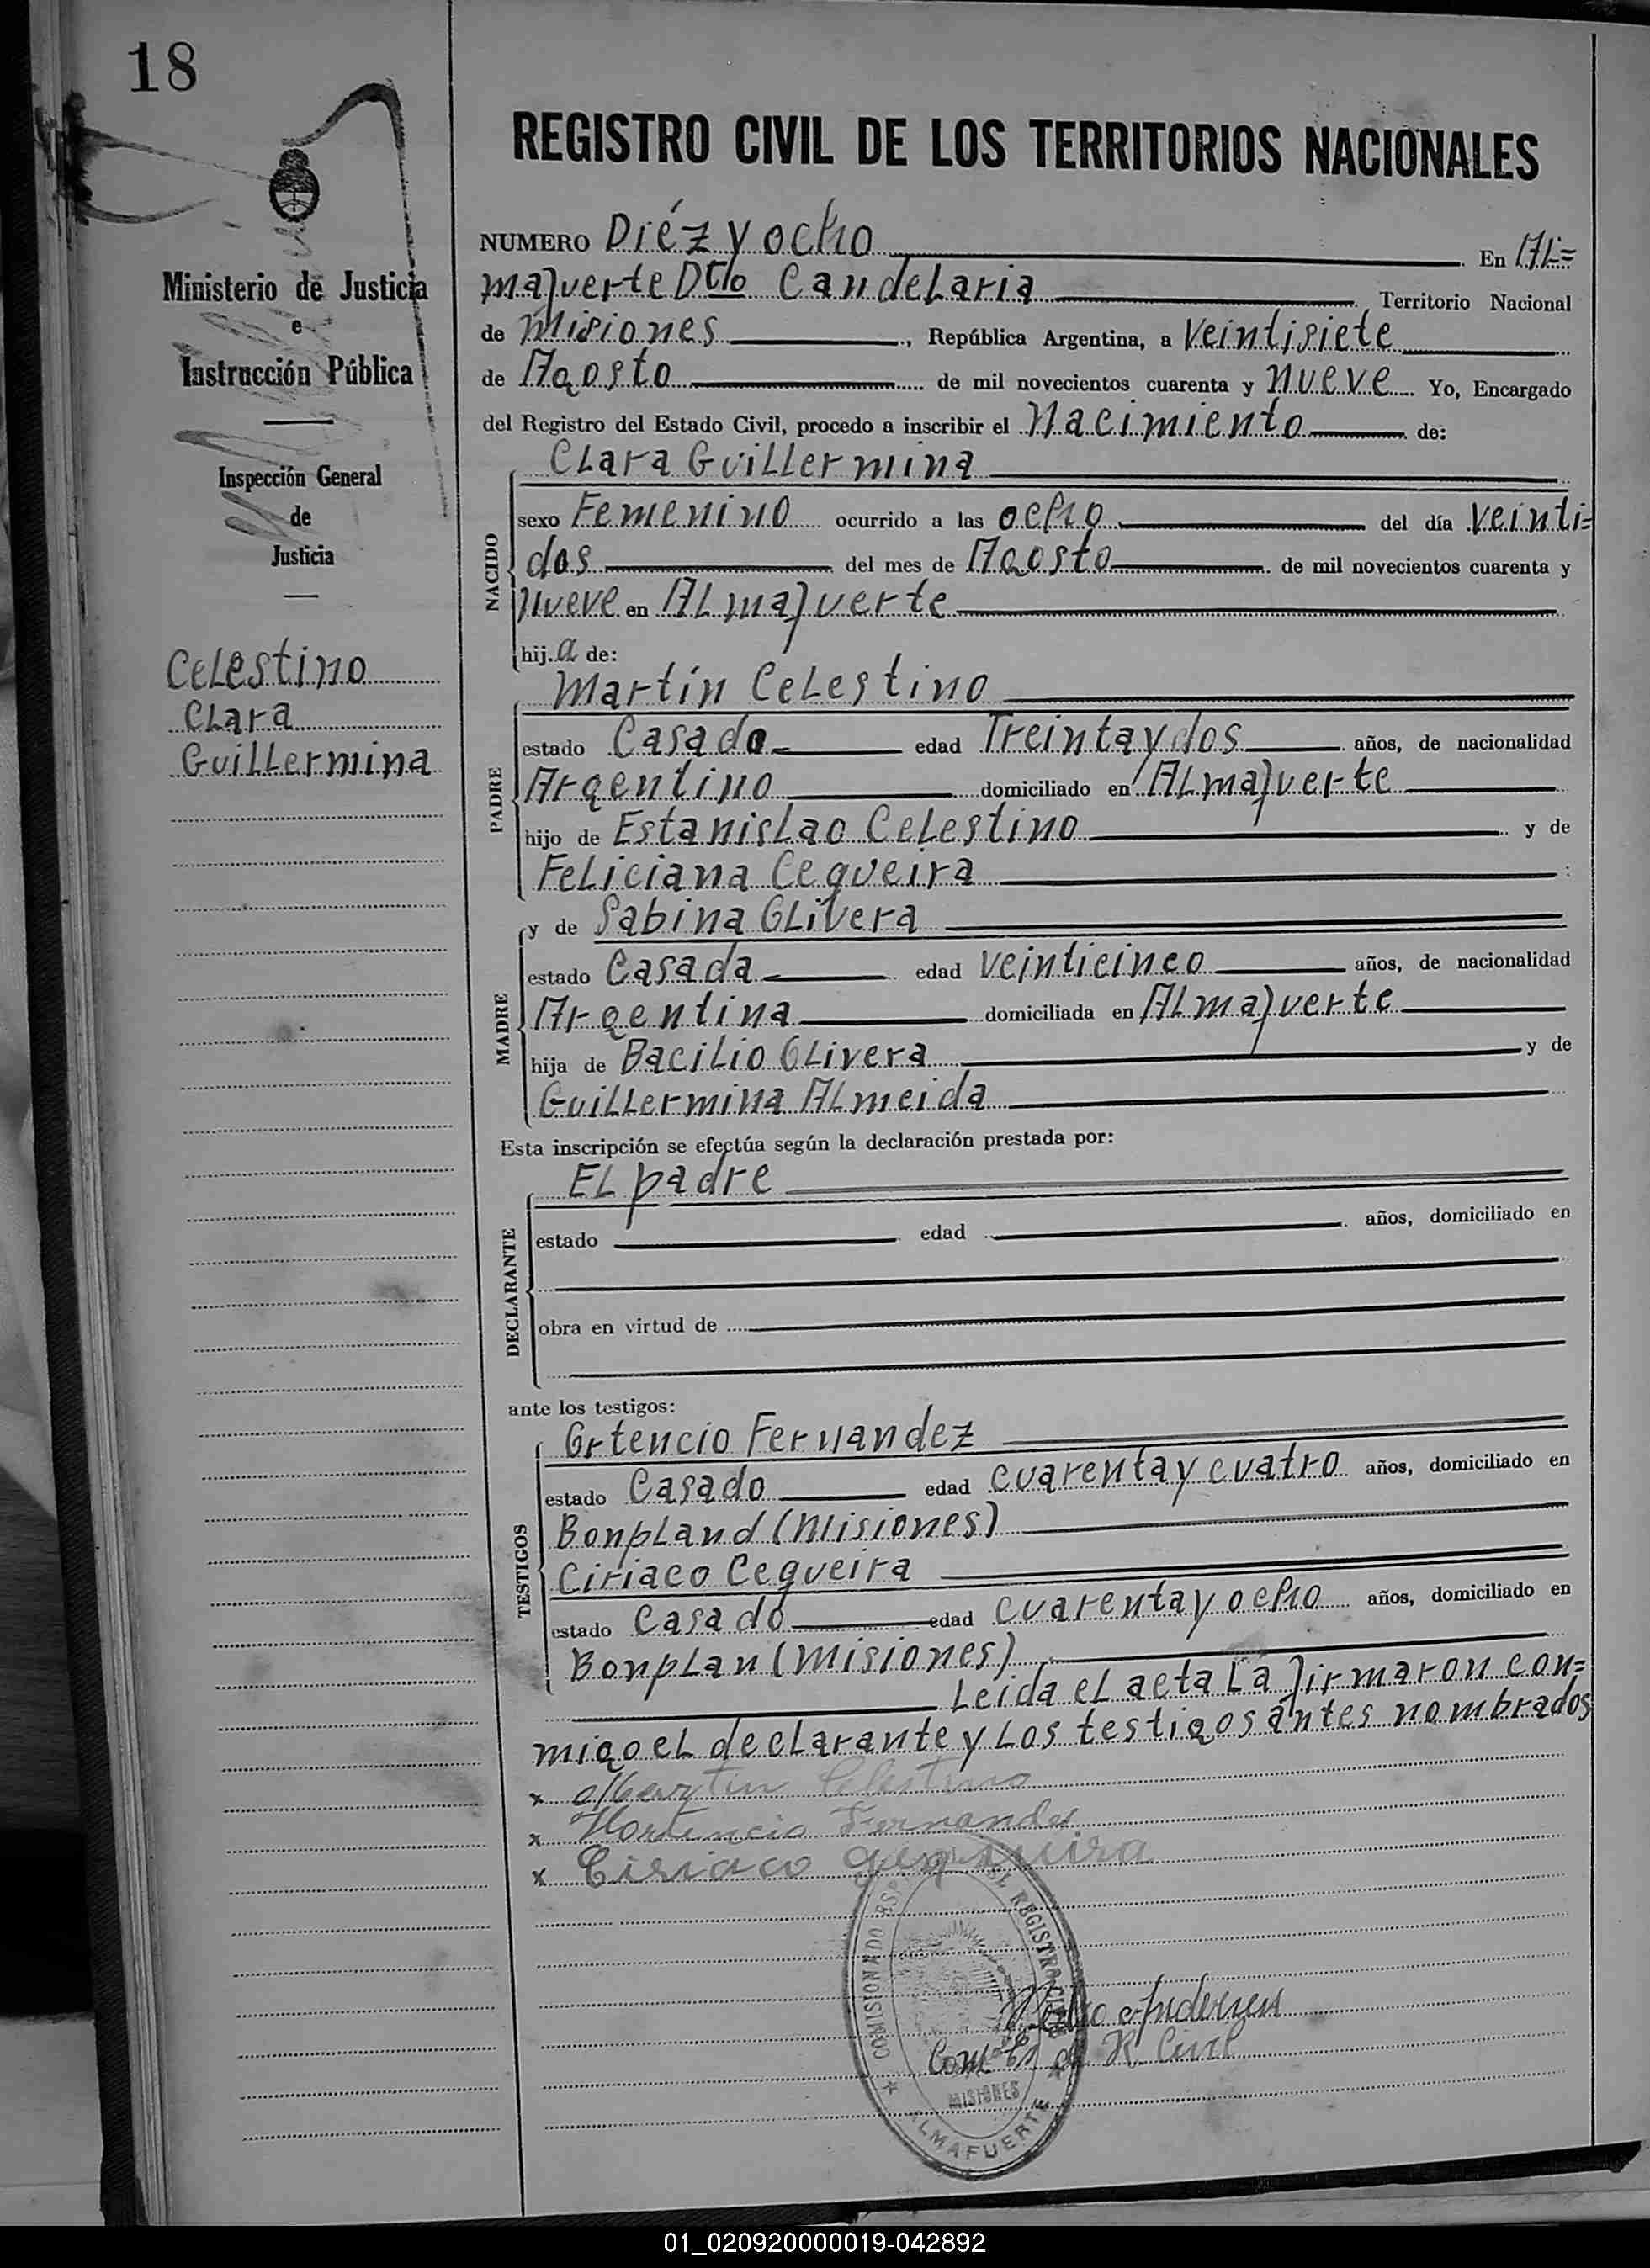 18
REGISTRO CIVIL DE LOS TERRITORIOS NACIONALES
Ministerio de Justicia
e
Instrucción Pública
Inspección General
de
Justicia
Celestino
Clara
Guillermina
NUMERO Diéz y ocho En Al=
mafuerte Dtlo Candelaria Territorio Nacional
de Misiones, República Argentina, a Veintisiete
de Agosto de mil novecientos cuarenta y nueve Yo, Encargado
del Registro del Estado Civil, procedo a inscribir el Nacimiento de:
NACIDO
Clara Guillermina
sexo Femenino ocurrido a las ocho del día veinti=
dos del mes de Agosto de mil novecientos cuarenta y
nueve en Almafuerte
hij.a de:
PADRE
Martín Celestino
estado Casado edad Treinta y dos años, de nacionalidad
Argentino domiciliado en Almafuerte
hijo de Estanislao Celestino y de
Feliciana Cequeira
MADRE
y de Sabina Olivera
estado Casada edad veinticinco años, de nacionalidad
Argentina domiciliada en Almafuerte
hija de Bacilio Olivera y de
Guillermina Almeida
Esta inscripción se efectúa según la declaración prestada por:
DECLARANTE
El padre
estado edad años, domiciliado en
obra en virtud de
ante los testigos:
TESTIGOS
Ortencio Fernandez
estado Casado edad cuarenta y cuatro años, domiciliado en
Bonpland (Misiones)
Ciriaco Cequeira
estado Casado edad cuarenta y ocho años, domiciliado en
Bonplan (Misiones)
Leida el acta la firmaron con=
migo el declarante y los testigos antes nombrados
x Martin Celestino
x Hortencio Fernandes
x Ciriaco
COMISIONADO REGISTRO CIVIL
Pedro Andersen
R. Civil
MISIONES
ALMAFUERTE
01_020920000019-042892